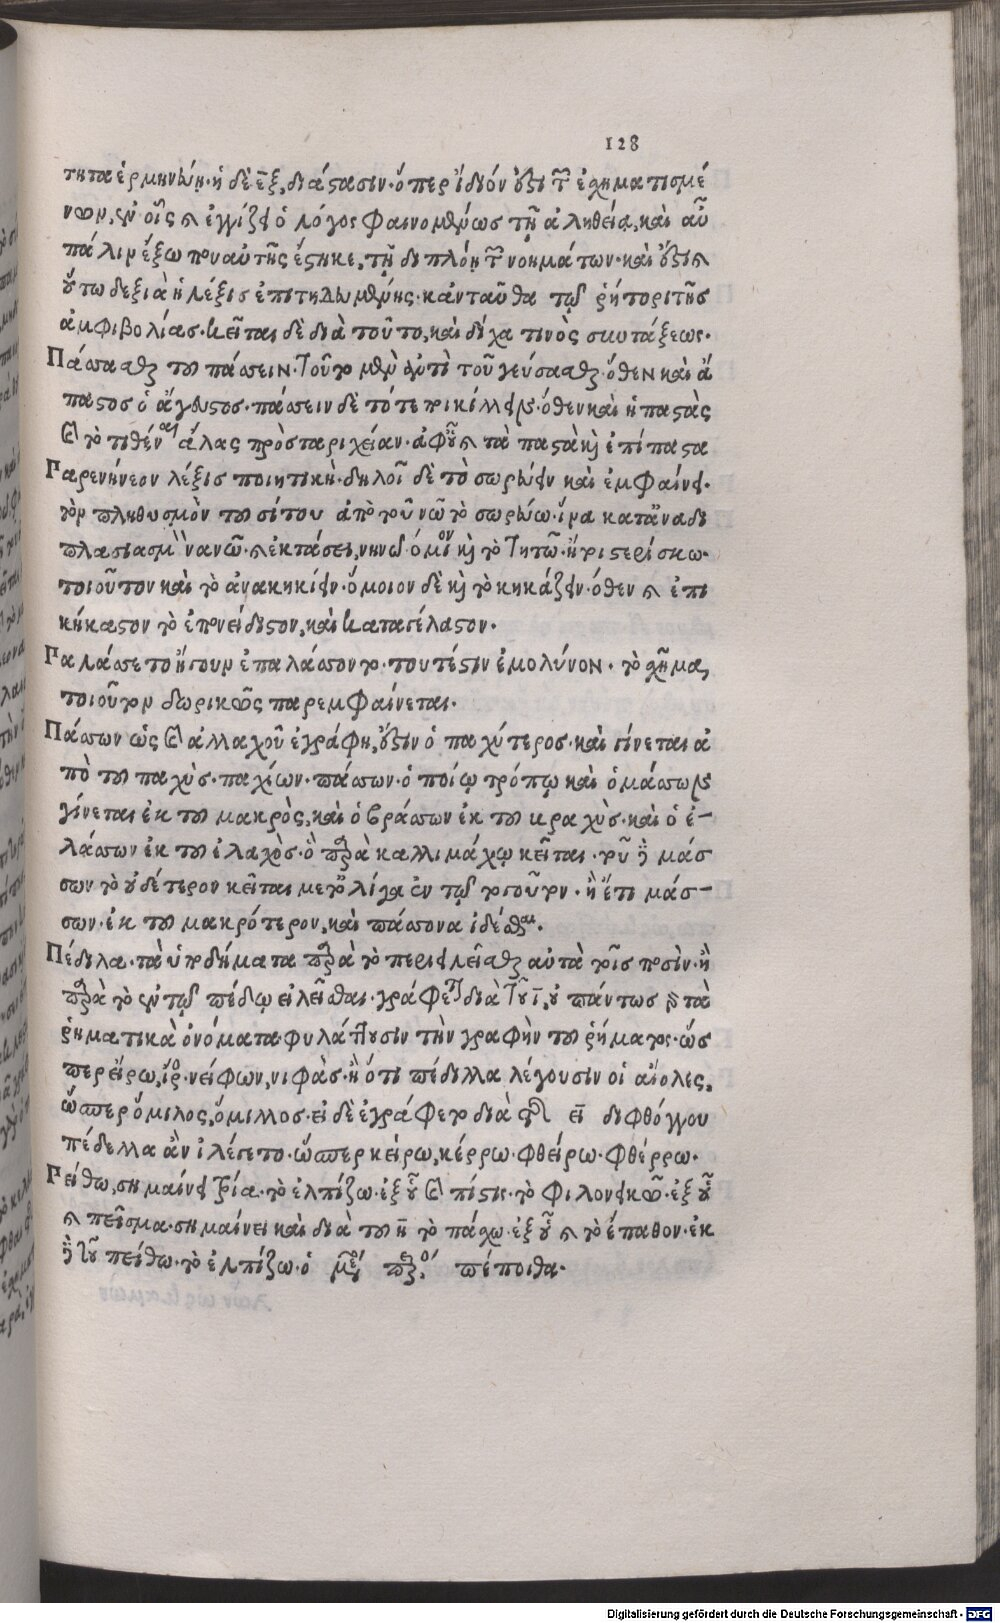 128
τητα ἑρμηνεύῃ. ἡ δὲ ἕξ, διάστασιν. ὅπερ ἴδιόν ἐστι τῶν ἐσχηματισμέ
νων, ἐν οἷς καὶ ἐγγίζει ὁ λόγος φαινομένως τῇ ἀληθείᾳ, καὶ αὖ
πάλιν ἔξω που αὐτῆς ἕστηκε, τῇ διπλόῃ τῶν νοημάτων. καὶ ἔστι καὶ
οὕτω δεξιὰ ἡ λέξις ἐπιτηδευομένης κἀνταῦθα τῷ ῥήτορι τῆς
ἀμφιβολίας. κεῖται δὲ διὰ τοῦτο, καὶ δίχα τινὸς συντάξεως.
Πάσασθαι τοῦ πάσσειν. τοῦτο μὲν ἀντὶ τοῦ γεύσασθαι. ὅθεν καὶ ἄ
παστος ὁ ἄγευστος. πάσσειν δὲ τὸ ποικίλλειν. ὅθεν καὶ ἡ παστὰς
καὶ τὸ τιθέναι ἅλας πρὸς ταριχείαν. ἀφ' οὗ καὶ τὰ παστὰ καὶ ἐπίπαστα
Παρενήνεον λέξις ποιητική. δηλοῖ δὲ τὸ σωρεύειν καὶ ἐμφαίνει
τὸν πληθυσμὸν τοῦ σίτου ἀπὸ τοῦ νῶ τὸ σωρεύω. ἵνα κατὰ ἀναδι
πλασιασμὸν νανῶ. καὶ ἐκτάσει, νηνῶ. ὅμοιον καὶ τὸ ζητῶ. ἢ ριστερίσκω.
τοιοῦτον καὶ τὸ ἀνακηκίειν. ὅμοιον δὲ καὶ τὸ κηκάζειν. ὅθεν καὶ ἐπι
κήκαστον τὸ ἐπονείδιστον, καὶ καταγέλαστον.
Παλάσσετο ἤγουν ἐπαλάσσοντο. τουτέστιν ἐμολύνοντο. τὸ σχῆμα,
τοιοῦτον δωρικῶς παρεμφαίνεται.
Πάσσων ὡς καὶ ἀλλαχοῦ ἐγράφη, ἔστιν ὁ παχύτερος. καὶ γίνεται ἀ
πὸ τοῦ παχύς. παχίων. πάσσων. ὁποίῳ τρόπῳ καὶ ὁ μάσσων
γίνεται ἐκ τοῦ μακρός, καὶ ὁ βράσσων ἐκ τοῦ βραχύς. καὶ ὁ ἐ-
λάσσων ἐκ τοῦ ἐλαχύς. ὃ παρὰ καλλιμάχῳ κεῖται. τοῦ δὲ μάσ
σων τὸ οὐδέτερον κεῖται μετ' ὀλίγα ἐν τῷ τοσοῦτον. ἢ ἔτι μάσ-
σον. ἐκ τοῦ μακρότερον, καὶ πάσσονα ἰδέσθαι.
Πέδιλα. τὰ ὑποδήματα παρὰ τὸ περιειλεῖσθαι αὐτὰ τοῖς ποσίν. ἢ
παρὰ τὸ ἐν τῷ πέδῳ εἰλεῖσθαι. γράφεται διὰ τοῦ ι, οὐ πάντως γὰρ τὰ
ῥηματικὰ ὀνόματα φυλάττουσιν τὴν γραφὴν τοῦ ῥήματος. ὥς
περ εἴρω, ἶρος. νείφων, νιφάς. ἢ ὅτι πέδιλλα λέγουσιν οἱ αἴολες,
ὥσπερ ὅμιλος, ὅμιλλος. εἰ δὲ ἐγράφετο διὰ τῆς ει διφθόγγου
πέδελλα ἂν ἐλέγετο. ὥσπερ κείρω, κέρρω. φθείρω. φθέρρω.
Πείθω, σημαίνει τρία. τὸ ἐλπίζω. ἐξ οὗ καὶ πίστις. τὸ φιλονεικῶ. ἐξ οὗ
καὶ πεῖσμα. σημαίνει καὶ διὰ τοῦ η τὸ πάσχω. ἐξ οὗ καὶ τὸ ἔπαθον. ἐκ
δὲ τοῦ πείθω. τὸ ἐλπίζω. ὁ μέσος παρακείμενος πέποιθα.
Digitalisierung gefördert durch die Deutsche Forschungsgemeinschaft - DFG